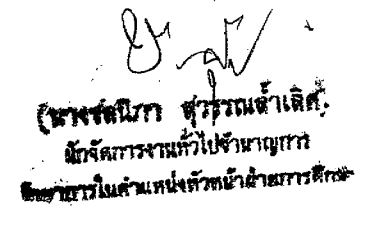 (นางชลนิภา สุวรรณล้ำเลิศ)
นักจัดการงานทั่วไปชำนาญการ
รักษาการในตำแหน่งหัวหน้าฝ่ายการศึกษา